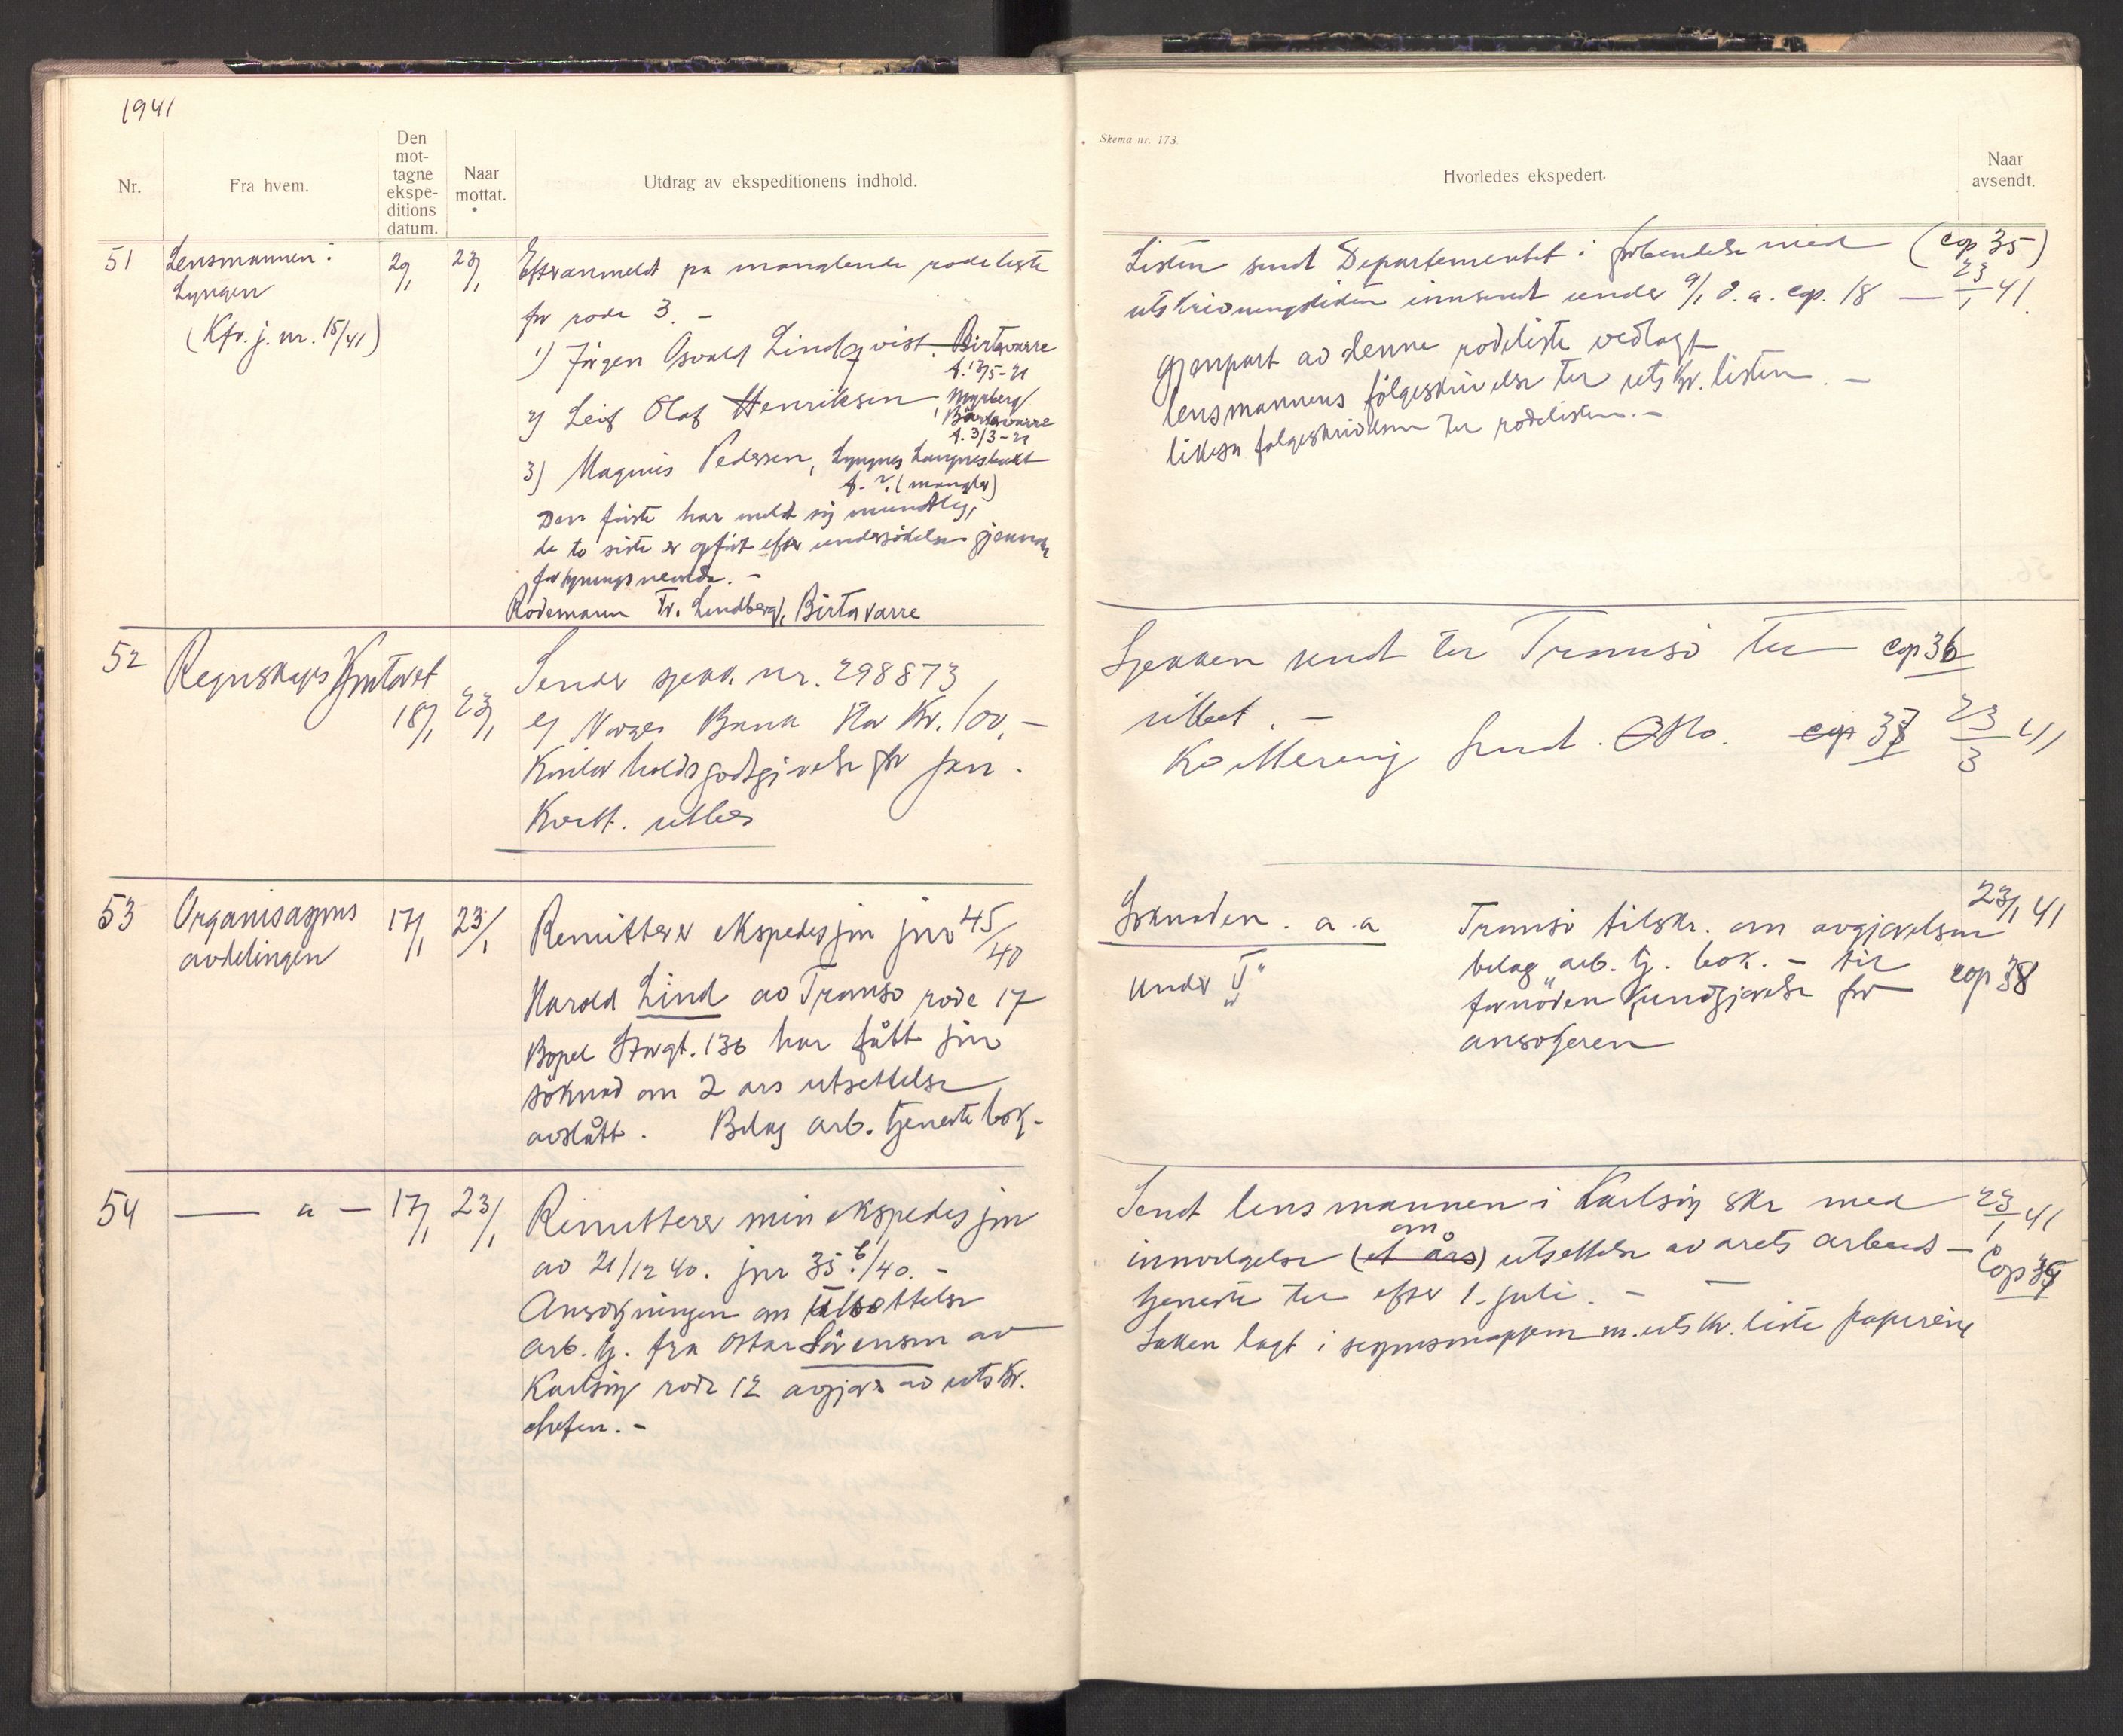 1941
Nr.
Fra hvem.
Den
mot-
tagne
ekspe-
ditions
datum.
Naar
mottat.
Utdrag av ekspeditionens indhold.
51
Lensmannen i
Lyngen
(Kfr. j. nr. 15/41)
23/1
Efteranmeldt på manglende rodeliste
for rode 3. -
1) Jörgen Osvald Lindqvist, Birtavarre
2) Leif Olaf Henriksen, Myrberg,
Birtavarre
f. 3/3-21
3) Magnus Pedersen, Lyngnes
f. ? (mangler)
Den förste har meldt sig muntlig,
de to siste er opfört efter undersökelse gjennem
forsyningsnemnda. -
Rodemann Tr. Lindberg, Birtavarre
52
Regnskapskontoret
18/1
23/1
Sender sjekk nr. 298873
på Norges Bank stor Kr. 100,-
Kontorholdsgodtgjørelse for jan.
Kvitt. utbes
53
Organisasjons
avdelingen
17/1
23/1
Remitterer ekspedisjon jnr 45/40
Harald Lind av Tromsö rode 17
Bopel Storgt. 136 har fått sin
söknad om 2 års utsettelse
avslått. Bilag arb. tjeneste bok.
54
— a —
17/1
23/1
Remitterer min ekspedisjon
av 21/12 40. jnr 35 b/40. -
Ansökningen om utsettelse
arb. tj. fra Ottar Sörensen av
Karlsöy rode 12 avgjort av utskr.
chefen. -
Skema nr. 173.
Hvorledes ekspedert.
Naar
avsendt.
Listen sendt Departementet i forbindelse med (cop 35)
utskrivningslisten innsendt under 9/1 d.a. cop. 18 — 23/1 41.
Gjenpart av denne rodeliste vedlagt
lensmannens fölgeskrivelse til utskr. listen. -
likesa fölgeskrivelsen til rodelisten. -
Sjekken sendt til Tromsö cop 36
Kvittering sendt. Oslo. cop 37
23/3 41
Söknaden. a.a
under "V"
Tromsö tilskr. om avgjørelsen
bilag arb. tj. bok. - til
fornöden kundgjørelse for
ansökeren
23/1 41
cop 38
Sendt lensmannen i Karlsöy skr med
innvilgelse (et års) om utsettelse av årets arbeids-
tjeneste til efter 1. juli. -
Saken lagt i sesjonsmappen m. utskr. liste papirene
23/1 41
Cop 39